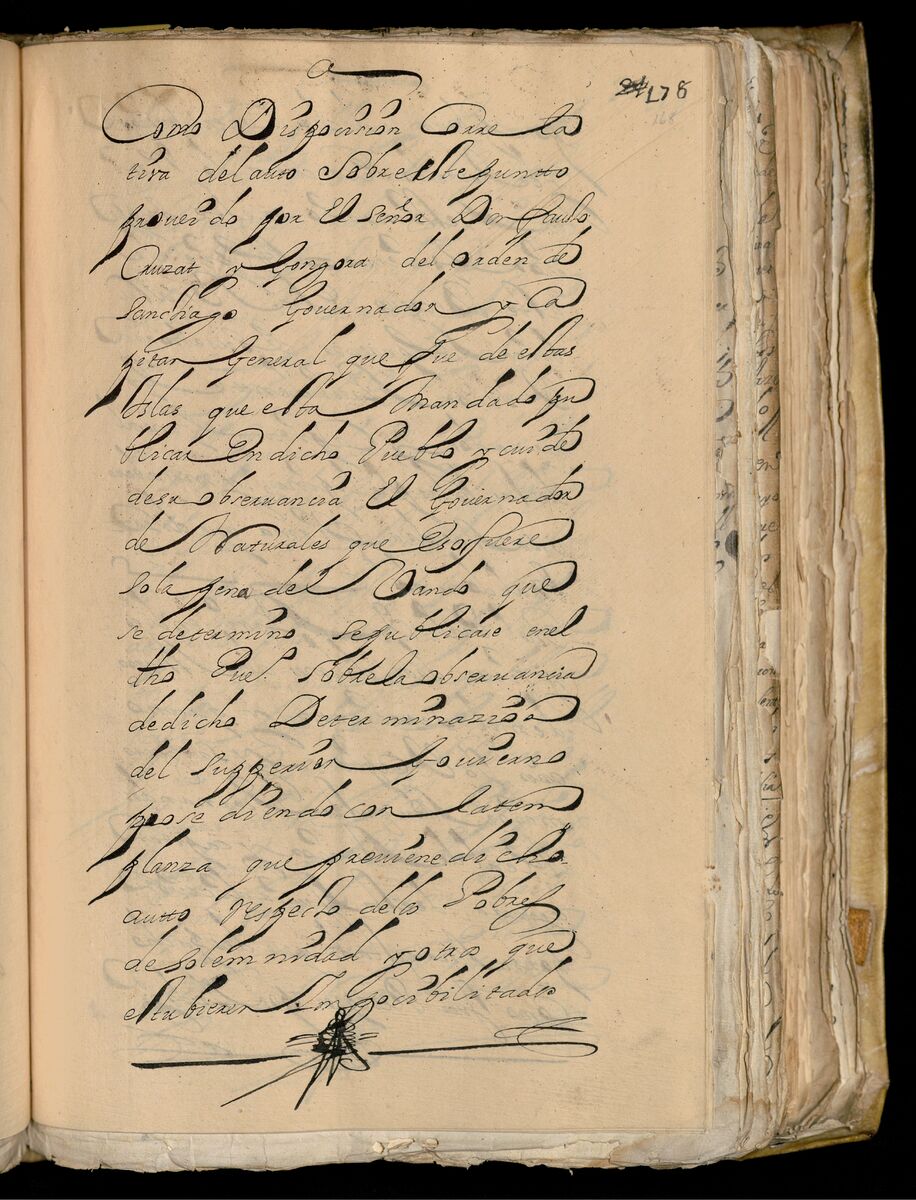 178
168
Como Dispocision Corre la
tiva del auto Sobre este puntto
proueido por El señor Don Fausto
Cruzat y Gongora del orden de
Sanctiago Governador y Ca
pitan General que Fue de estas
Islas que esta Mandado pu
blicar En dicho Pueblo y cuide
desu obseruancia El Governador
de Naturales que Es o fuere
sola pena del Vando que
se determino sepublicase enel
dho Pueº. sobre la obseruancia
dedicho Determinazion
del supperior Gouierno
prosediendo con latem
planza que preuiene dicho
autto respecto delos Pobres
de solemnidad y otros que
estubieren Impocibilitados